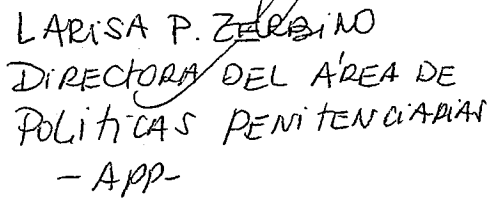 LARISA P. ZERBINO
DIRECTORA DEL ÁREA DE
POLITICAS PENITENCIARIAS
- APP-